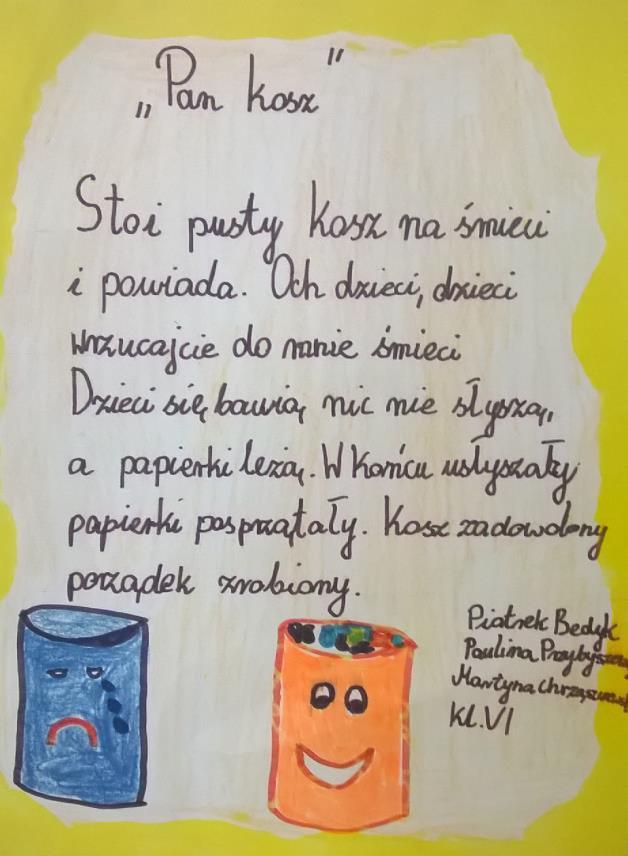 „Pan kosz”
Stoi pusty kosz na śmieci
i powiada. Och dzieci, dzieci
wrzucajcie do mnie śmieci
Dzieci się bawią nic nie słyszą,
a papierki leżą. W końcu usłyszały
papierki posprzątały. Kosz zadowolony
porządek zrobiony.
Piotrek Bedyk
Paulina
Martyna
KL.VI